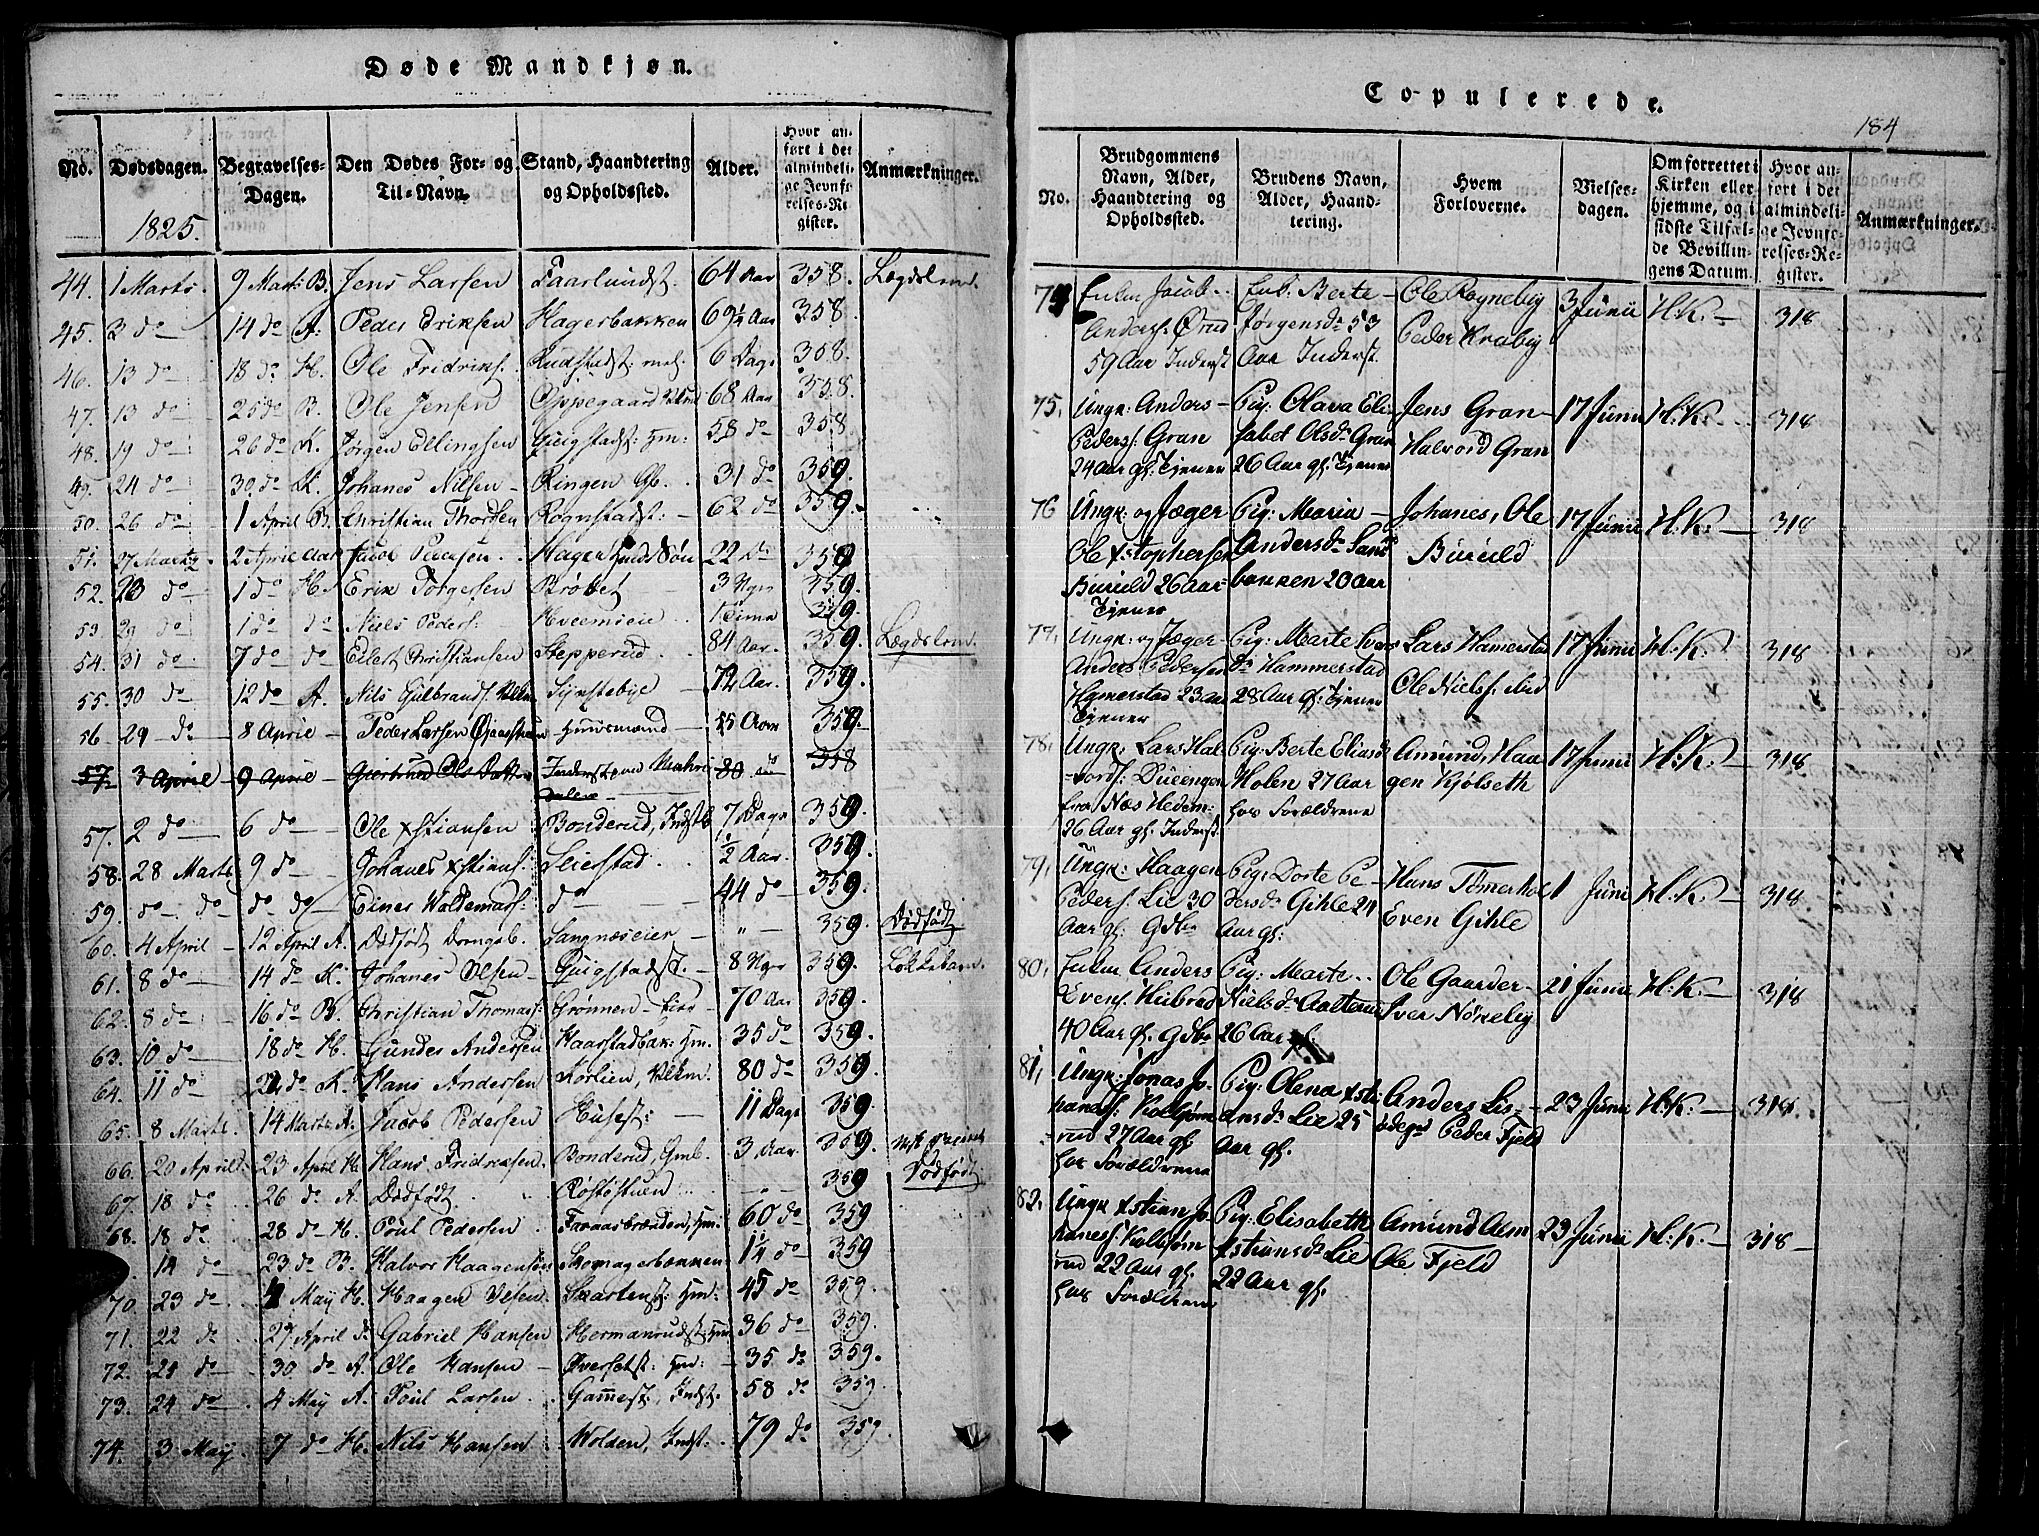 Døde Mandkjøn.
No. Dødsdagen. Begravelses-Dagen. Den Dødes For- og Til-Navn. Stand, Haandtering og Opholdssted. Alder. Hvor anført i det almindelige Jevnførelses-Register. Anmærkninger.
1825.
44. 1 Marts. 9 Mart: B. Jens Larsen Faarlundst. 64 Aar 358. Lægdslem.
45. 3 do 14 do A: Peder Eriksen Hagerbakken 69½ Aar 358.
46. 13 do 18 do H. Ole Fridriks: 6 Dage 358.
47. 13 do 25 do B. Ole Jensen Oppegaard 68 Aar 358.
48. 19 do 26 do K. Jørgen Ellingsen Quigstadst: Hm: 58 do 358
49. 24 do 30 do K. Johanes Nilsen Ringen 31 do 359.
50. 26 do 1 April B. Christian Thorsen Rognstadst: 62 do 359.
51. 27 Marts 2 April Jacob Pedersen Hager 22 do 359
52. 28 do 1 do H. Erik Torgersen Brøbet 3 Uger 359.
53. 29 do 1 do do Niels Peders: Hveemseie 1 Time 359.
54. 31 do 7 do do Eilert Christiansen Stepperud 84 Aar. 359. Lægdslem.
55. 30 do 12 do A. Nils Gulbrands: Synstebye 72 Aar. 359.
56 29 do 8 April Peder Larsen Huusmand 55 Aar 359.
57 3 April 9 April Giertrud Ols 80 do 358
57. 2 do 6 do Ole Xstiansen Bonderud, Indst 7 Dage 359.
58. 28 Marts 9 do Johanes Xstians: Seierstad ½ Aar. 359.
59. do do do do Einer Waldemars: do 44 do 359.
60. 4 April 12 April A. Dødfødt Drengeb. Langnæseier " 359. Dødfødt
61. 8 do 14 do K. Johanes Olsen Quigstadst. 8 Uger 359. Løskebarn.
62. 8 do 16 do B. Christian Thomas: Grønnen 70 Aar 359.
63. 10 do 18 do H. Gunder Andersen Haarstadbak: Hm. 35 do 359.
64. 11 do 21 do K. Hans Andersen Korlien, 80 do 359.
65. 8 Marts. 14 Marts A. Jacob Pedersen Husest: 11 Dage 359.
66. 20 April 23 April H. Hans Fridriksen. Bonderud, Gmb. 3 Aar. 359.
67. 18 do 26 do A. Dødfødt Røstøstuen 359 Dødfødt.
68. 18 do 28 do H. Poul Pedersen Hm. 60 do 359
14 do 23 do B. Halvor Haagensen Skomagerbakken 1¼ do 359
70. 23 do 4 May H. Haagen Skartenst: Hm: 45 do 359.
71. 22 do 27 April do Gabriel Hansen Hermanrudst: Hm 36 do 359.
72. 24 do 30 do A. Ole Hansen Øversetst: Hm: 35 do 359.
73. 24 do 4 May A. Poul Larsen Gammest: Indst. 58 do 359.
74. 3 May 7 do H. Nils Hansen Wolden, Indst: 79 do 359.
Copulerede.
184
No. Brudgommens Navn, Alder, Haandtering og Opholdssted. Brudens Navn, Alder, Haandtering. Hvem Forloverne. Vielses-dagen. Om forrettet i Kirken eller hjemme, og i sidste Tilfælde Bevillingens Datum. Hvor anført i det almindelige Jevnførelses-Register. Anmærkninger.
74 Enkm Jacob Enk. Berte Ole Rognebig 3 Junii H.K. 318
Anders: Ørud Jørgensdr 53 Peder Krabig
59 Aar Inderst Aar Inderst.
75, Ungk: Anders Pig: Olava Eli Jens Gran 17 Junii H.K. 318
Peders: Gran sabet Olsdr Gran Halvord Gran
24 Aar gl: Tjener 26 Aar gl: Tjener
76 Ungk: og Jæger Pig: Maria Johanes, Ole 17 Junii H.K. 318
Ole Xstophersen Andersdr Sand Buruld
Buruld 26 Aar bakken 20 Aar
Tjener
77, Ungk: og Jæger Pig: Marte Ivers Lars Hamerstad 17 Junii H.K. 318
Anders Pedersen dr Hammerstad Ole Niels: ibid
Hamerstad 23 Aar 28 Aar gl: Tjener
Tjener
78, Ungk: Lars Hal Pig: Berte Eliasd Amund, Haa 17 Junii H.K. 318
vords: Dueengen Holen 27 Aar gen Kjølseth
fra Næs Hedem: hos Forældrene
26 Aar gl: Inderst.
79, Ungk: Haagen Pig: Dorte Pe Hans Tømerhol 1 Juni H.K. 318
Peders: Lie 30 dersdr Gihle 24 Even Gihle
Aar gl: Gdbr Aar gl:
80, Enkm Anders Pig: Marte Ole Gaarder 21 Junii H.K. 318
Evens: Nielsdr Iver Nøkleby
40 Aar gl. Gdbr 26 Aar gl.
81, Ungk: Jonas Jo Pig: Olena Xsti Anders Lis 23 Juni H.K. 318.
hanes: Kolbjørn ansdr Lie 25 Peder Fjeld
rud 27 Aar gl: Aar gl.
hos Forældrene
82, Ungk Xstian Jo Pig. Elisabeth Amund Alm 23 Junii H.K. 318
hanes: Kolbjørn Xstiansdr Lie Ole Fjeld
rud 22 Aar gl. 22 Aar gl.
hos Forældrene